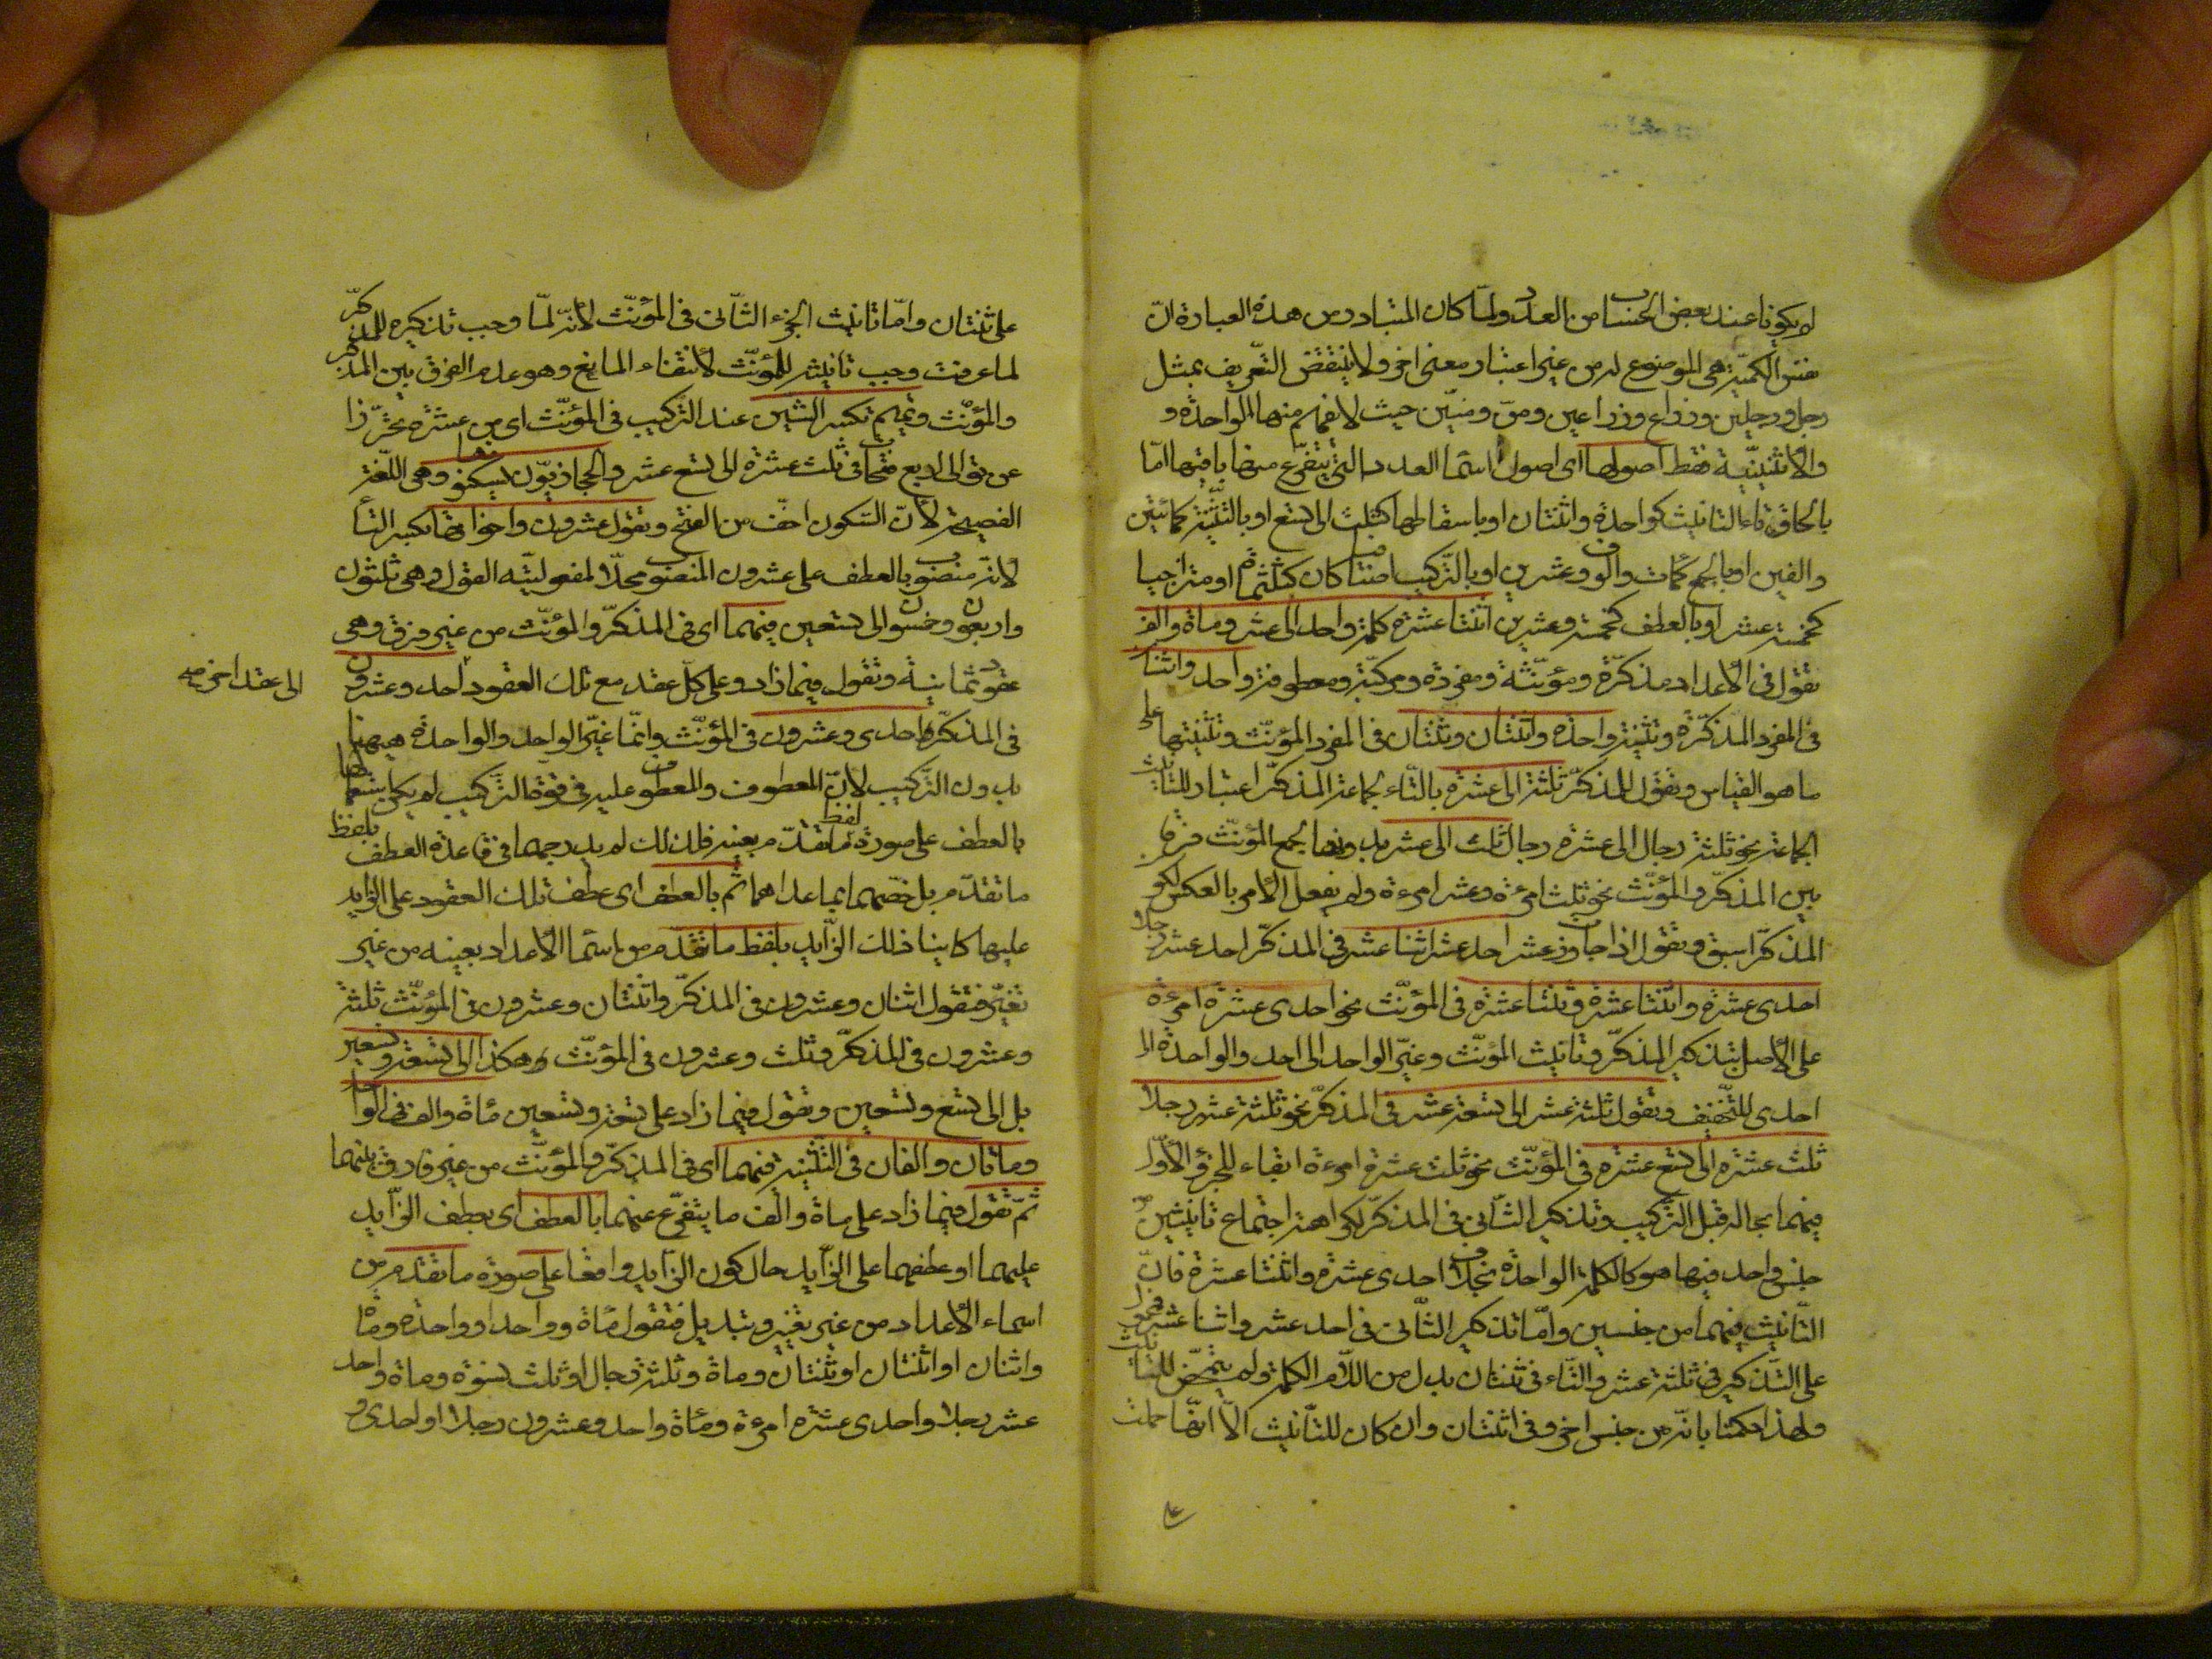 لا يكونا عند بعض الحساب من العدد ولما كان المتبادر من هذه العبارة ان
نفس الكمية هي الموضوع له من غير اعتبار معنى اخر ولا ينتقض التعريف بمثل
رجل ورجلين وذراع وذراعين ومنّ ومنّين حيث لا يفهم منها الواحدة و
والاثنينية فقط اصولها اى اصول اسما العدد التى يتفرع منها باقيها امّا
بالحاق تاء التانيث كواحدة واثنتان او باسقاطها كثلث الى تسع او بالتثنية كمائتين
والفين او بالجمع كمات والوف وعشرين او بالتركيب اضافيا كان كثلثماة او امتزاجيا
كخمسة عشر او بالعطف كخمسة وعشرين اثنتا عشرة كلمة واحد الى عشر وماة والف
تقول فى الاعداد مذكرة ومؤنثة ومفردة ومركبة ومعطوفة واحد واثنا
فى المفرد المذكرة وتثنية واحدة واثنتان وثنتان فى المفرد المؤنث وتثنيتها على
ما هو القياس وتقول للمذكر ثلثة الى عشرة بالتاء لجماعة المذكر اعتبار للتانيث
الجماعة نحو ثلثة رجال الى عشرة رجال ثلث الى عشر بدونها لجمع المؤنث فرقا
بين المذكر والمؤنث نحو ثلث امرءة وعشر امرءة ولم يفعل الامر بالعكس لكو
المذكر اسبق وتقول اذا جاوز عشر احد عشر اثنا عشر فى المذكر احد عشر رجلا
احدى عشرة واثنتا عشرة وثنتا عشرة فى المؤنث نحو احدى عشرة امرءة
على الاصل بتذكير المذكر وتانيث المؤنث وغير الواحد الى احد والواحدة الى
احدى للتخفيف وتقول ثلثة عشر الى تسعة عشر فى المذكر نحو ثلثة عشر رجلا
ثلث عشرة الى تسع عشرة فى المؤنث نحو ثلث عشرة امرءة ابقاء للجزؤ الاول
فيهما بحاله قبل التركيب وتذكير الثانى فى المذكر لكراهة اجتماع تانيثين
جنس واحد فيها هو كالكلمة الواحدة بخلاف احدى عشرة واثنتا عشرة فان
التانيث فيهما من جنسين وامّا تذكير الثانى فى احد عشر واثنا عشر فمحمول
على التذكير فى ثلثة عشر والتاء فى ثنتان بدل من اللام الكلمة ولم يتمحض للتانيث
ولهذا حكمنا بانه من جنس اخر وفى اثنتان وان كان للتانيث الا انها حملت
على ثنتان وامّا تانيث الجزء الثانى فى المؤنث لانه لمّا وجب تذكيره للمذكر
لما عرفت وجب تانيثه للمؤنث لانتفاء المانع وهو عدم الفرق بين المذكر
والمؤنث وتميم تكسر الشين عند التركيب فى المؤنث اى من عشرة تحرزا
عن توالى اربع فتحات فى ثلث عشرة الى تسع عشر والحجازيون يسكنونها وهى اللغة
الفصيحة لان السكون اخف من الفتح وتقول عشرون واخواتها بكسر التا
لانه منصوب بالعطف على عشرون المنصوب محلا لمفعوليته القول وهى ثلثون
واربعون وخمسون الى تسعين فيهما اى فى المذكر والمؤنث من غير فرق وهى
عقود ثمانية وتقول فيما زاد وعلى كل عقد مع تلك العقود احد وعشرون
الى عقد اخر صح
فى المذكر واحدى وعشرون فى المؤنث وانما غير الواحد والواحدة هيهنا
بدون التركيب لان المعطوف والمعطوف عليه فى قوة التركيب لم يكن استعمالهما
بالعطف على صورة لفظ ما تقدم بعينه فلذلك لم يدرجهما فى قاعدة العطف بلفظ
ما تقدم بل خصهما بما عداهما ثم بالعطف اى عطف تلك العقود على الزايد
عليها كاينا ذلك الزايد بلفظ ما تقدم من اسما الاعداد بعينه من غير
تغير فتقول اثنان وعشرون فى المذكر واثنتان وعشرون فى المؤنث ثلثة
وعشرون فى المذكر وثلث وعشرون فى المؤنث وهكذا الى تسعة وتسعين
بل الى تسع وتسعين وتقول فيما زاد على تسعة وتسعين مئاة والف فى الواحد
وماتان والفان فى التثنية فيهما اى فى المذكر والمؤنث من غير فارق بينهما
ثمّ تقول فيما زاد على ماة والف ما يتفرع عنهما بالعطف اى بعطف الزايد
عليهما او عطفهما على الزايد حال كون الزايد واقعا على صورة ما تقدم من
اسماء الاعداد من غير تغيير وتبديل فتقول مئاة وواحد او واحدة وماة
واثنان او اثنتان او ثنتان وماة وثلثة رجال او ثلث نسوة وماة واحد
عشر رجلا واحدى عشرة امرءة ومئاة واحد وعشرون رجلا او احدى و